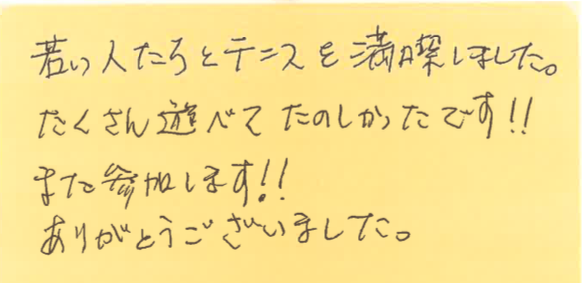 若い人たちとテニスを満喫しました。
たくさん遊べてたのしかったです!!
また参加します!!
ありがとうございました。